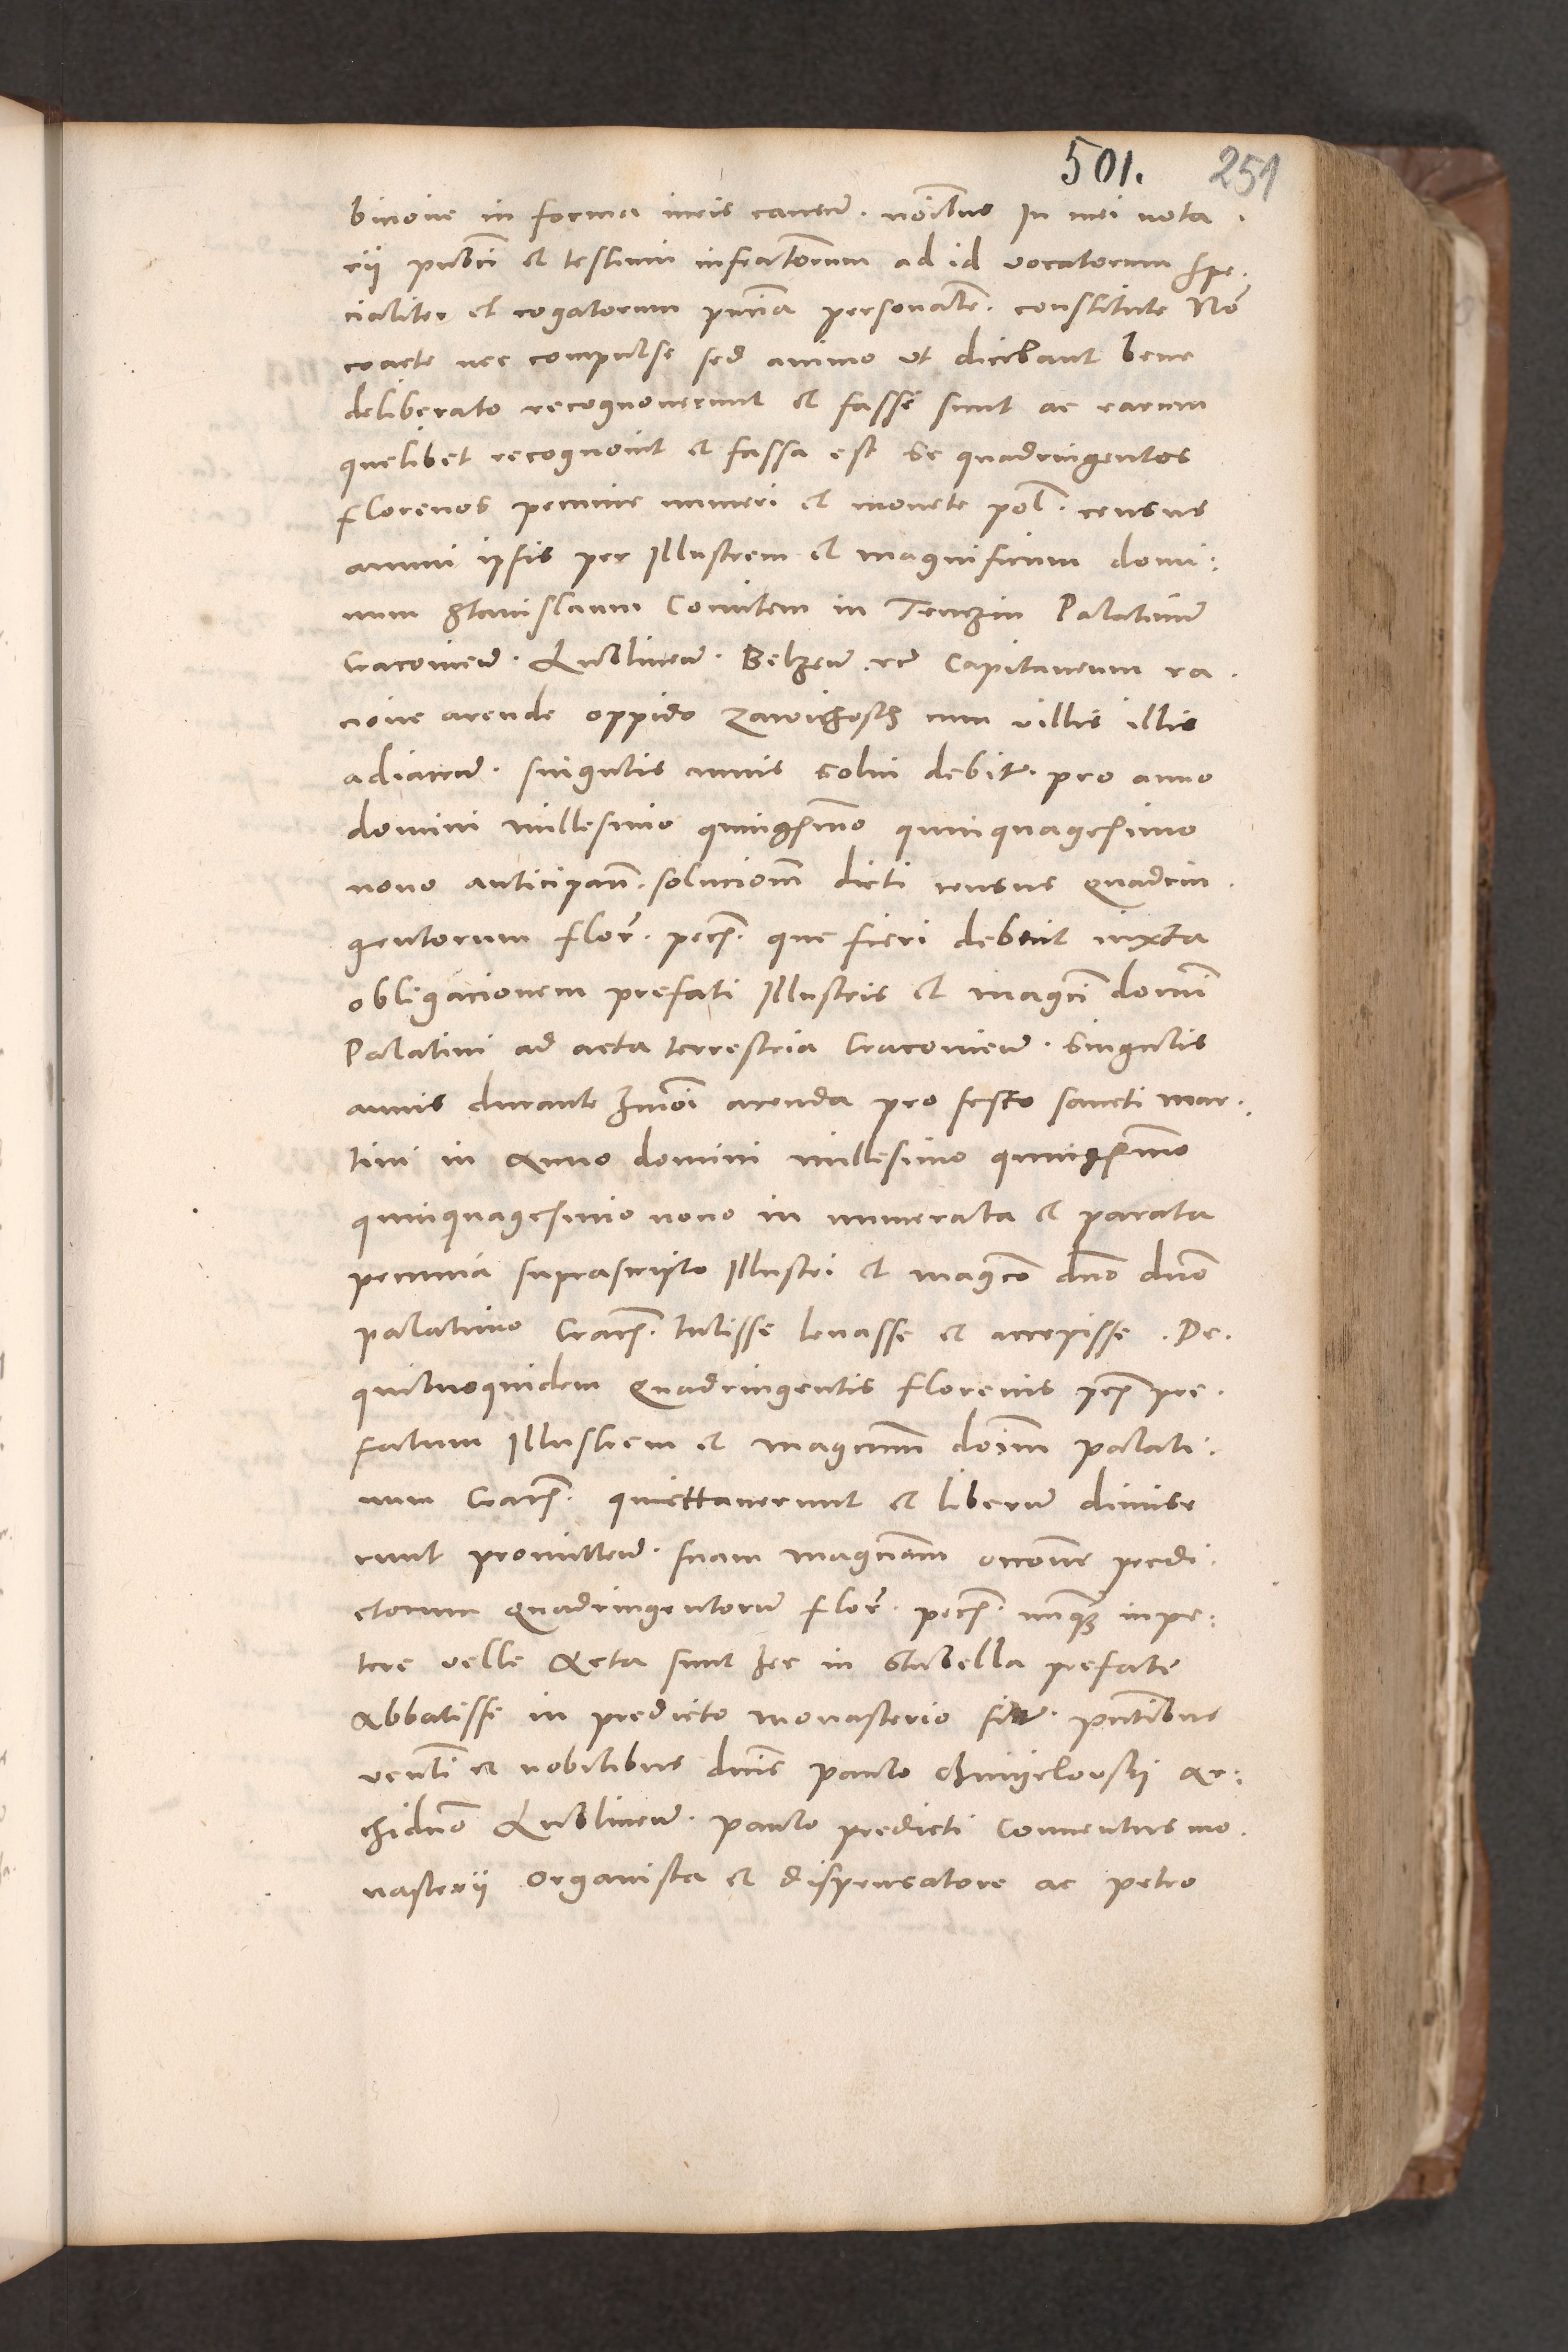 501. 251
bicione in forma iuris canend. noibus In mei nota.
rii publici et testium infrascriptorum ad id vocatorum spe.
cialiter et rogatorum pñcia personalr. constitute Nō
coacte nec compulse sed animo ut dicebant bene
deliberato recognoverunt et fasse sunt ac earum
quelibet recognovit et fassa est se quadringentos
florenos pecunie numeri et monete pol. census
annui ipsis per Illustrem et magnificum domi:
num Stanislaum Comitem in Tenczin Palatinū
Cracovien. Lublinen. Belzen. etc Capitaneum ra.
cione arende oppido Zawichosth cum villis illis
adiacen. singulis annis solui debit. pro anno
domini millesimo quingesimo quinquagesimo
nono anticipan. solucionem dicti census Quadrin.
gentorum flor. pecs. que fieri debuit iuxta
obligacionem prefati Illustris et magci domi
Palatini ad acta terrestria Cracovien. singulis
annis durante hmoi arenda pro festo sancti mar.
tini in Anno domini millesimo quingesimo
quinquagesimo nono in numerata et parata
pecunia suprascripto Illustri et magco dno dno
palatino Cracs. tulisse levasse et accepisse. De.
quibusquidem Quadringentis florenis pcs pre.
fatum Illustrem et magcum doim palati:
num Cracs. quiettaverunt et liberum dimise
runt promitten. suam magnam occone predi.
ctorum Quadringentorū flor. pecs. nunqz inpe:
tere velle Acta sunt hec in Stubella prefate
Abbatisse in predicto monasterio sitr. pntibus
venli et nobilibus dnis paulo Ar:
chidno Lublinen. paulo predicti Conventus mo.
nasterii organista et dispensatore ac petro